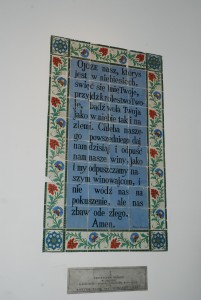 Ojcze nasz, któryś
jest w niebiesiech,
święć się Imię Twoje,
przyjdź królestwo Two-
je, bądź wola Twoja
jako w niebie tak i na
ziemi. Chleba nasze-
go powszedniego daj
nam dzisiaj. I odpuść
nam nasze winy, jako
i my odpuszczamy na-
szym winowajcom, i
nie wódź nas na
pokuszenie, ale nas
zbaw ode złego.
Amen.